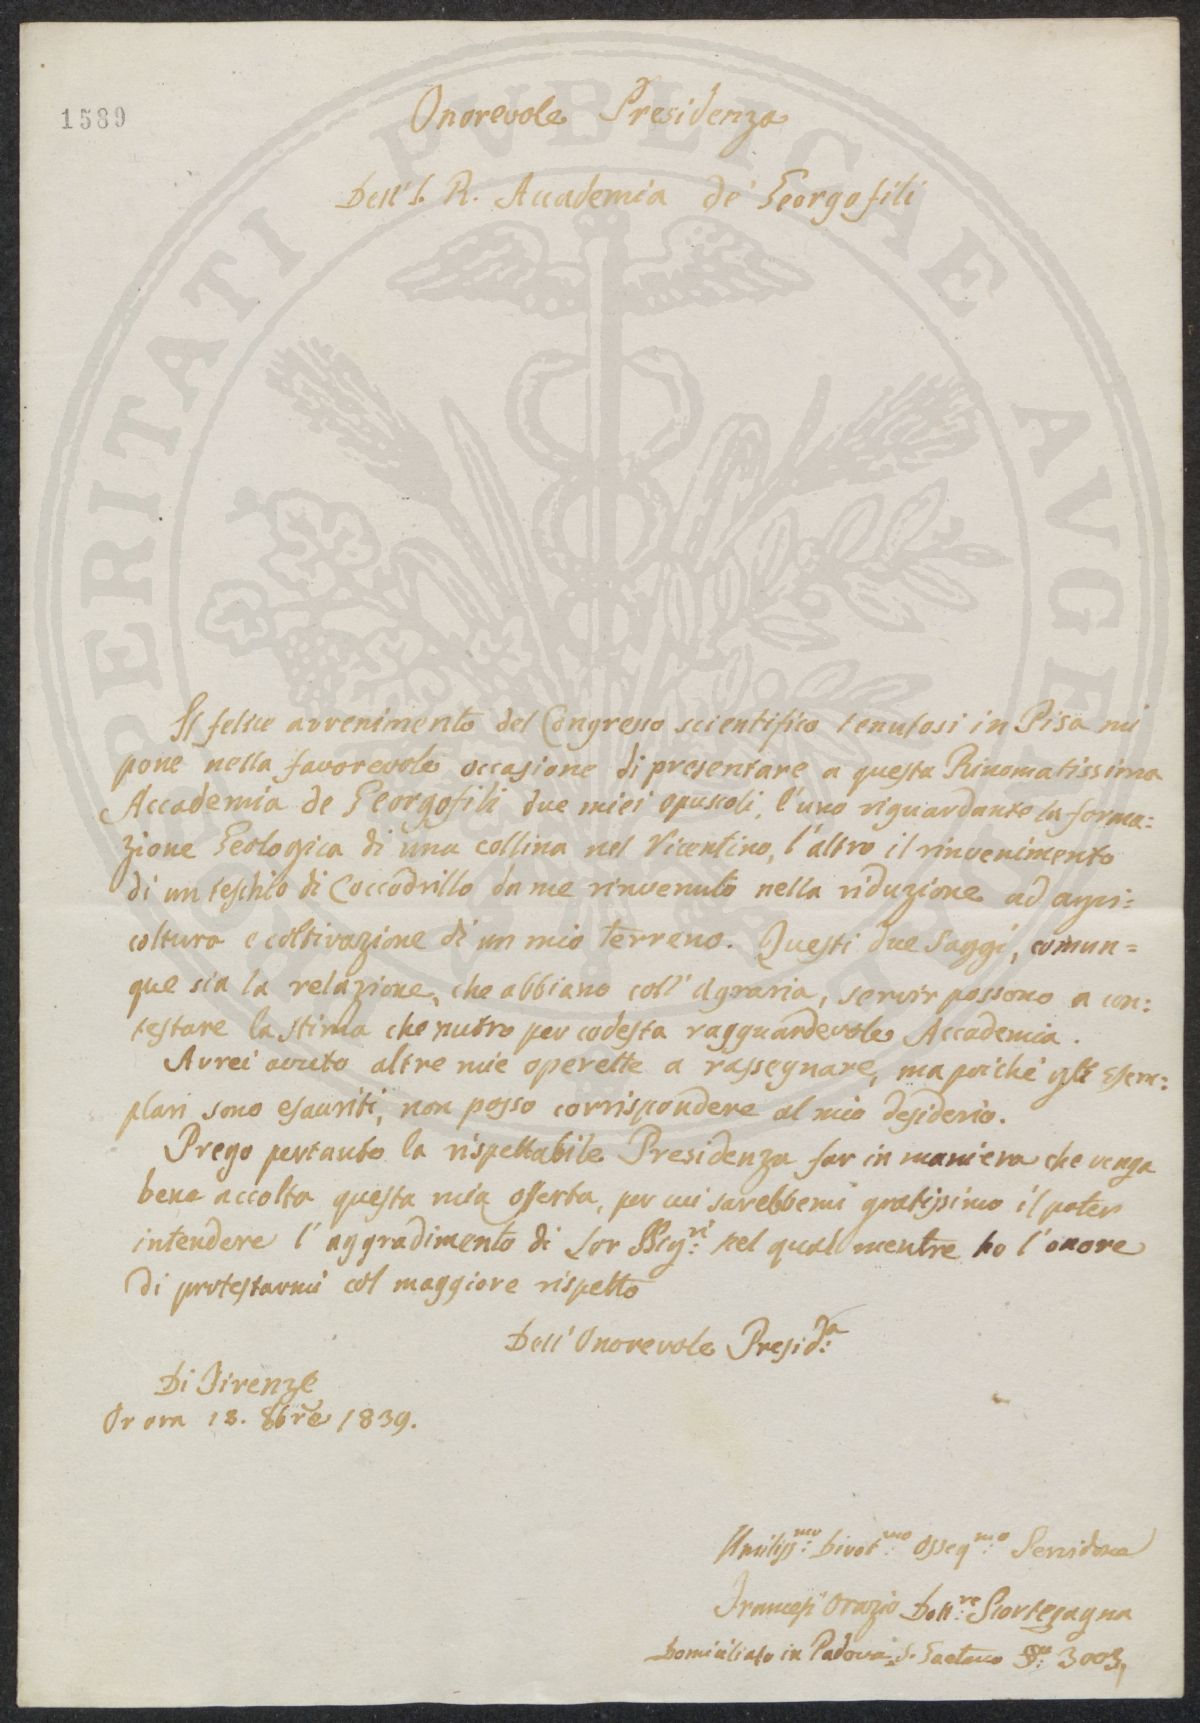 1589
Onorevole Presidenza
Dell'I. R. Accademia de' Georgofili
PROSPERITATI PVBLICAE AVGENDAE
Il felice avvenimento del Congresso scientifico tenutosi in Pisa mi
pone nella favorevole occasione di presentare a questa Rinomatissima
Accademia de Georgofili due miei opuscoli, l'uno riguardante la forma=
zione Geologica di una collina nel Vicentino, l'altro il rinvenimento
di un teschio di Coccodrillo da me rinvenuto nella riduzione ad agri=
coltura e coltivazione di un mio terreno. Questi due Saggi, comun=
que sia la relazione, che abbiano coll' Agraria, servir possono a con:
testare la stima che nutro per codesta ragguardevole Accademia.
Avrei avuto altre mie operette a rassegnare, ma poichè gli Esem=
plari sono esauriti, non posso corrispondere al mio desiderio.
Prego pertanto la rispettabile Presidenza far in maniera che venga
bene accolta questa mia offerta, per cui sarebbemi gratissimo il poter
intendere l'aggradimento di Lor SSig:ri nel qual mentre ho l'onore
di protestarmi col maggiore rispetto
Dell'Onorevole Presid:a
Di Firenze
Or ora 18. 8bre 1839.
Umiliss:mo Divot:mo Osseq:mo Servidore
Frances' Orazio Dott:re Scortegagna
Domiciliato in Padova S. Gaetano 3003